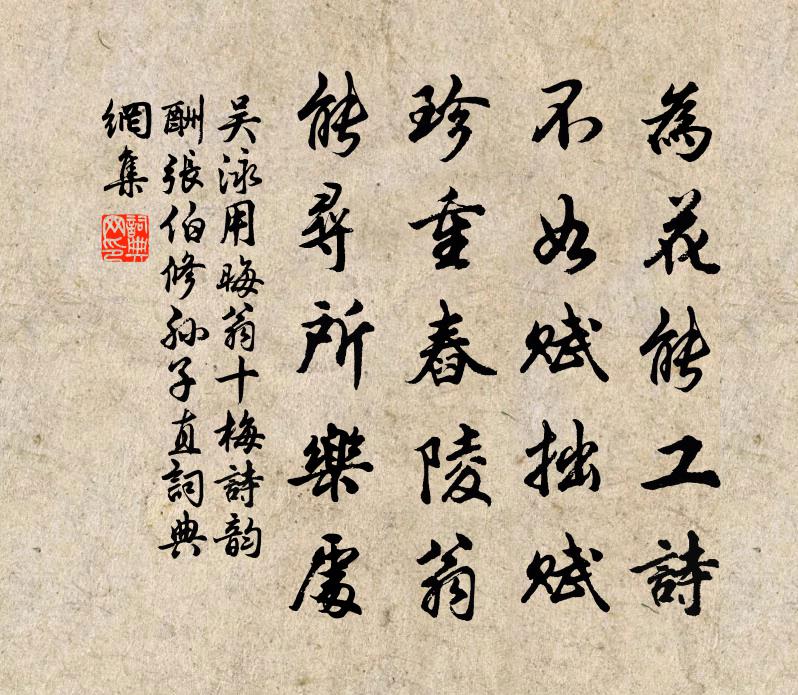 為花能工詩
不如賦拙賦
珍重舂陵翁
能尋所樂處
吳泳用晦翁十梅詩韵
酬張伯修孙子直詞典
網集
詞典
网印